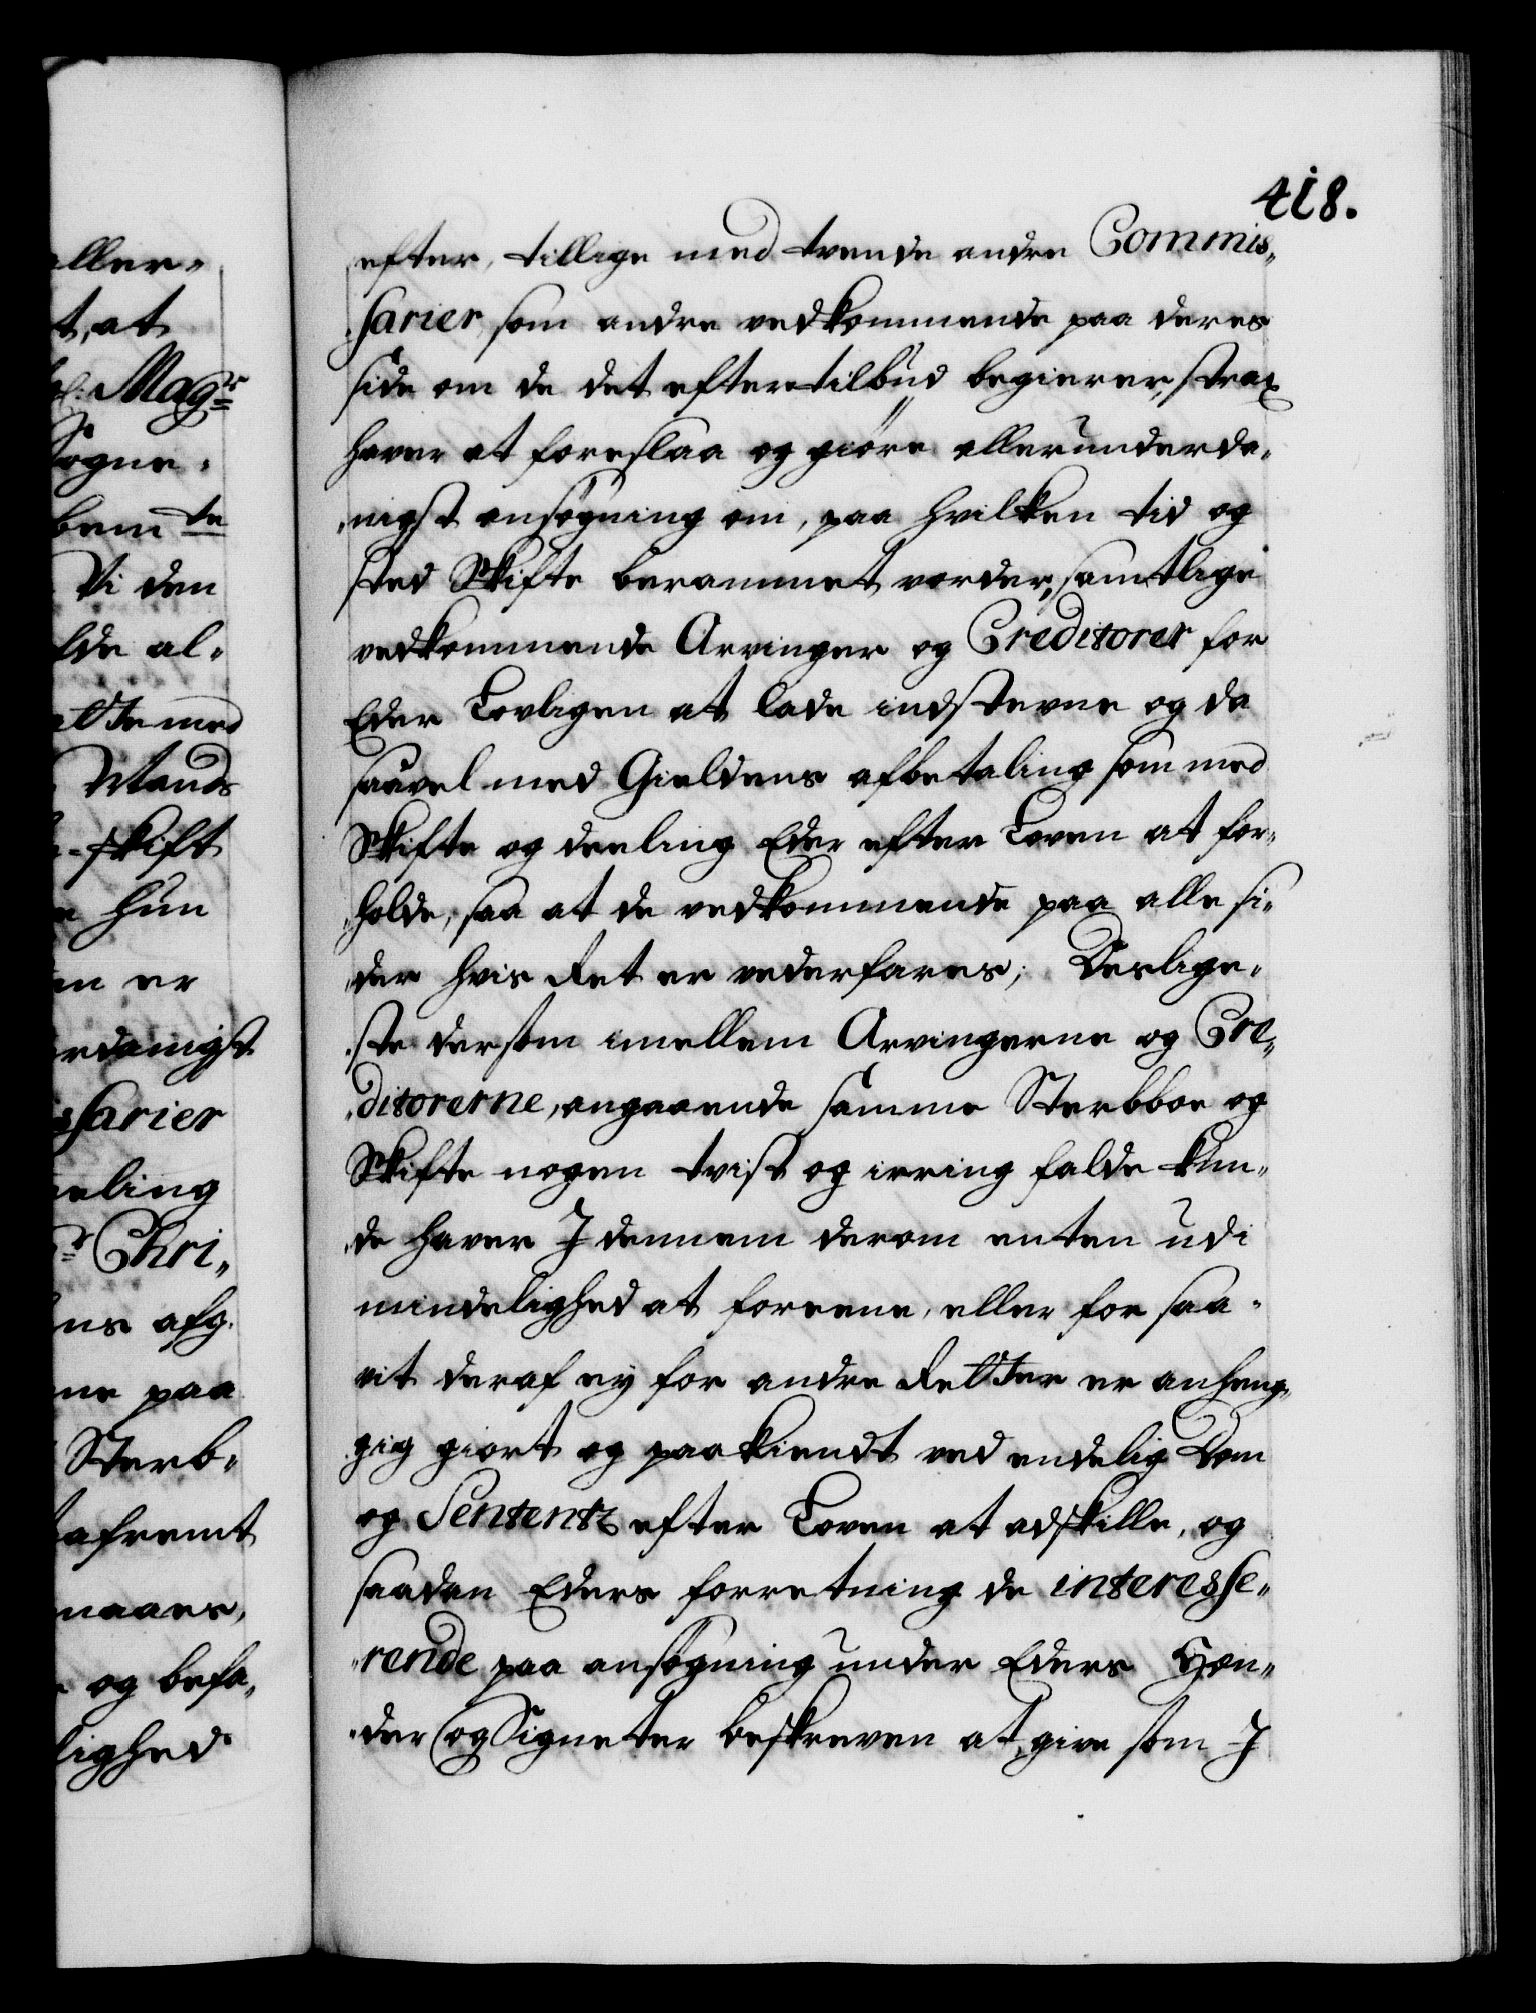 418.
efter, tillige med tvende andre Commis„
„sarier, som andre vedkommende paa deres
side om de det efter tilbud begierer, strax
haver at foreslaa og giöre allerunderda„
„nigst ansögning om, paa hvilken tid og
sted Skifte berammet vorder, samtlige
vedkommende Arvinger og Creditorer for
Eder Lovligen at lade indstevne og da
saavel med Gieldens afbetaling som med
Skifte og deeling Eder efter Loven at for„
„holde, saa at de vedkommende paa alle si„
„der hvis Ret er vederfares; Deslige„
„ste dersom imellem Arvingerne og Cre„
„ditorerne, angaaende samme Sterbboe og
Skifte nogen tvist og irring falde kun„
„de haver I dennem derom enten udi
mindelighed at foreene, eller for saa„
vit deraf ey for andre Retter er anheng„
„gig giort og paakiendt ved endelig Dom
og Sententz efter Loven at adskille, og
saadan Eders forretning de interesse„
„rende paa ansögning under Eders Hæn„
„der og Signeter beskreven at give som I
aller„
t, at
Magr
Sogne„
bemte
Vi den
lde al„
atte med
Mands
skift
hun
er
rdanigst
sarier
eling
Chri„
afg.
ne paa
Sterb„
afremt
maaer,
og befa„
lighed